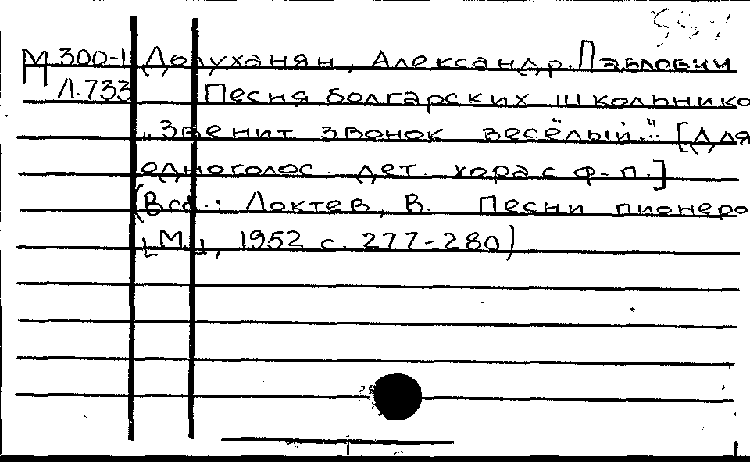 М 300-1 Долуханян, Александр Павлович
Л.733 Песня болгарских школьнико
"Звенит звонок весёлый..." [Для
одноголос. дет. хора с ф-п.]
(В сб.: Локтев, В. Песни пионеро
[М.], 1952 с. 277-280)